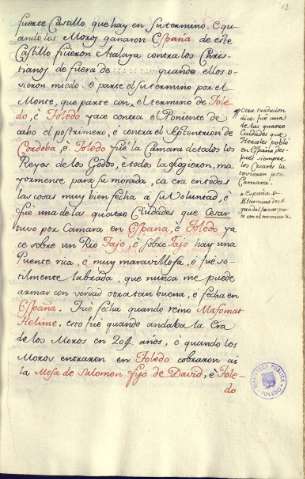 fuerte Castillo, que hay en su termino. E qu-
ando los Moros ganaron España, de este
Castillo fueron Atalaya contra los Chris-
tianos de fuera de quando ellos o-
vieron miedo. O parte el su termino por el
Monte, que parte con el termino de Tole-
do, è Toledo yace contra el Poniente de
cabo el postrimero, è contra el Septentrion de
Cordoba è Toledo fuè la Camara de todos los
Reyes de los Godos, è todos la eligieron, ma-
yormente para su morada, ca era en todas
las cosas muy bien fecha à su voluntad, è
fuè una de las quatro Ciudades que Cesar
tuvo por Camara en España, è Toledo ya-
ce sobre un Rio Tajo, è sobre Tajo hay una
Puente rica, è muy maravillosa, è fue so-
tilmente labrada, que nunca me puede
asmar con verdad obra tan buena, è fecha en
España. Fuè fecha quando reinò Mafomat
Helime, esto fuè quando andaba la Era
de los Moros en 204 años, è quando los
Moros entraron en Toledo cobraron ai
la Mesa de Salomon fijo de David, è Tole-
do
Otra tradicion
dice: fue una
de las quatro
Ciudades que
Hercules poblò
en España, des-
pues siempre
los Cesares la
tuvieron por
Camara.